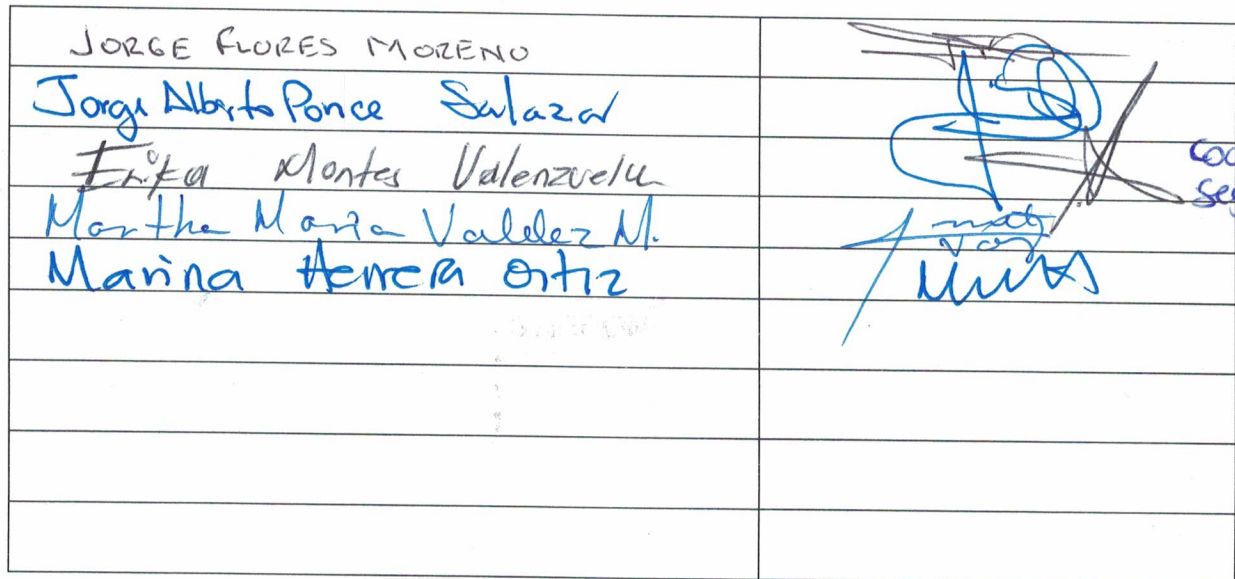 JORGE FLORES MORENO
Jorge Alberto Ponce Salazar
Erika Montes Valenzuela
Martha Maria Valdez M.
Marina Herrera Ortiz